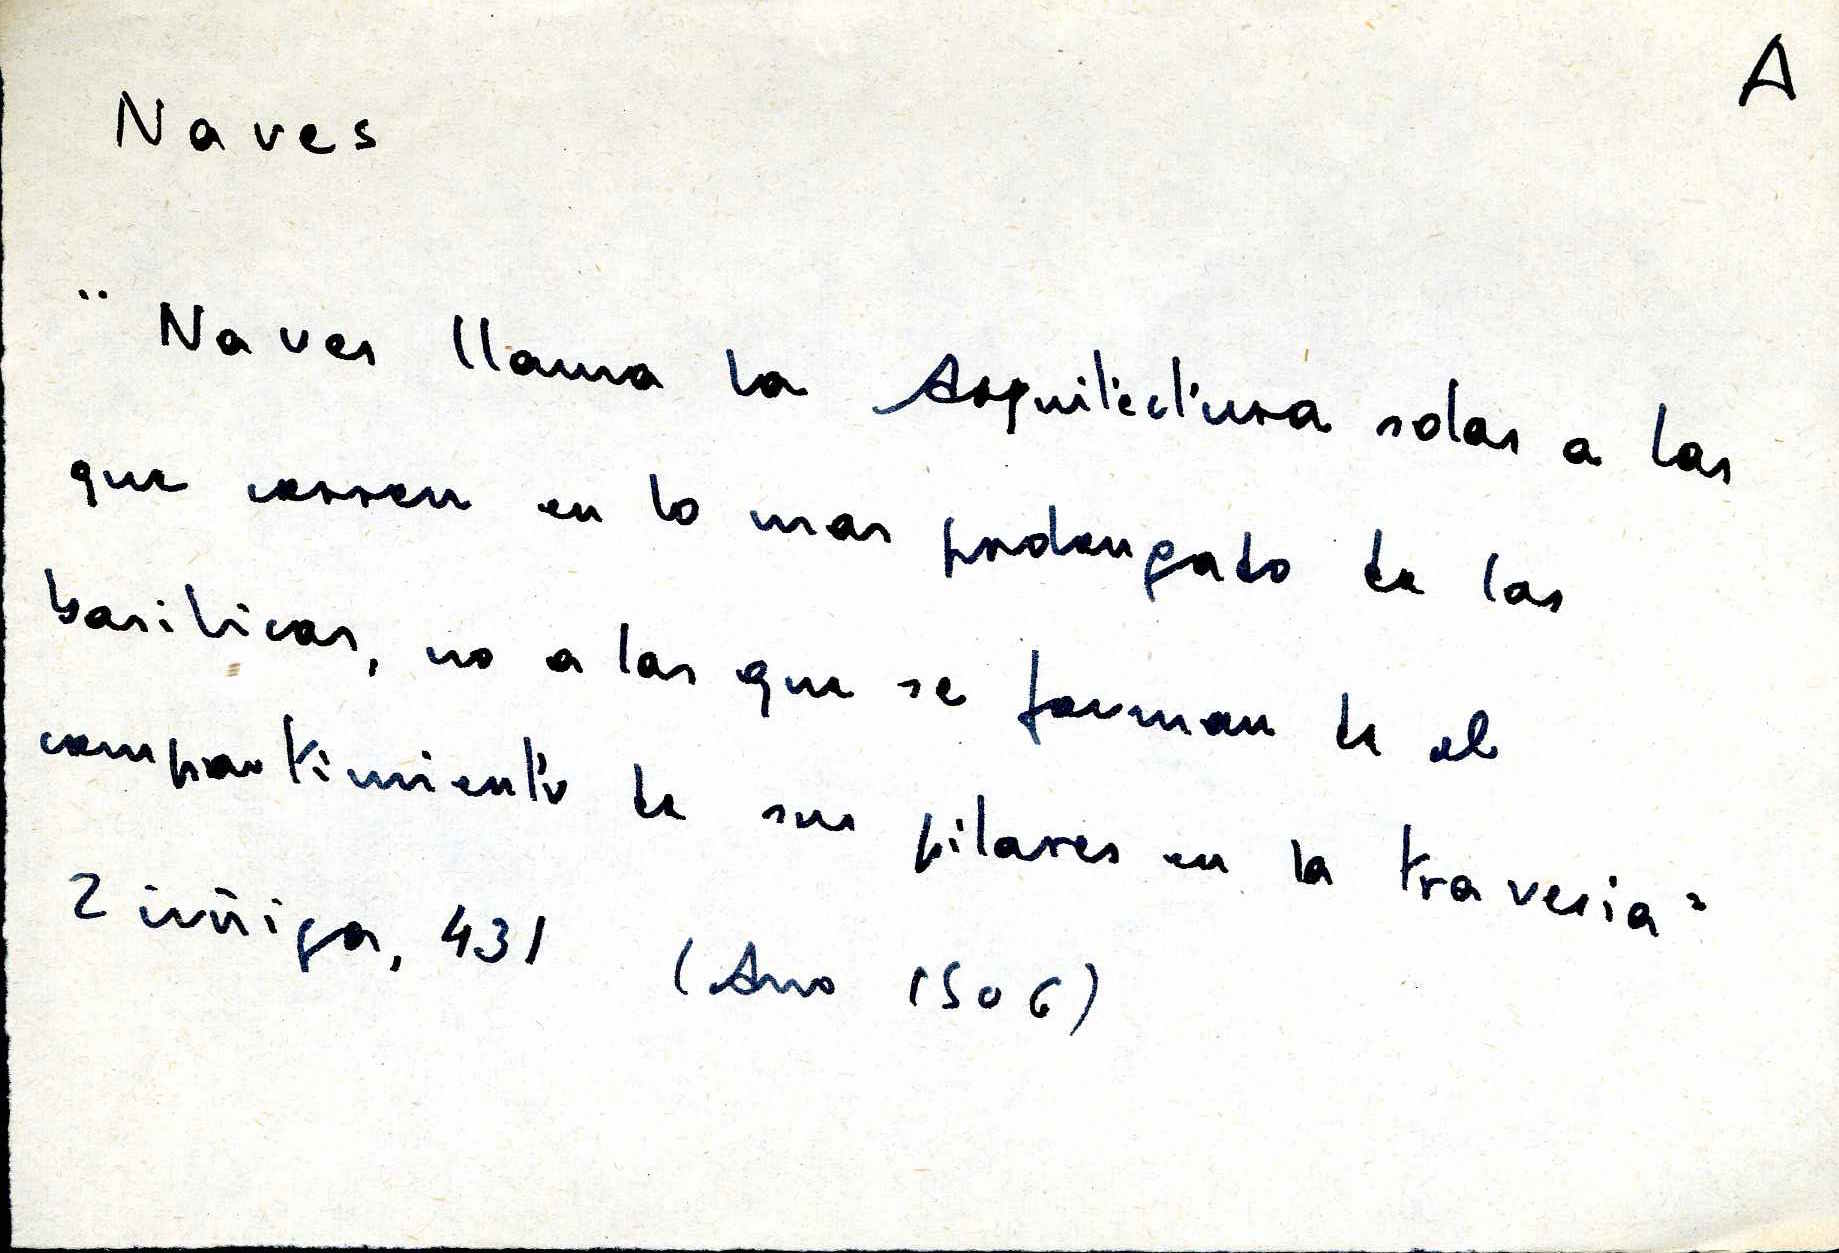 A
Naves
" Naves llama la Arquitectura solas a las
que corren en lo mas prolongado de las
basilicas, no a las que se forman de el
compartimiento de sus pilares en la travesia"
Zuñiga, 431 (Ano 1506)